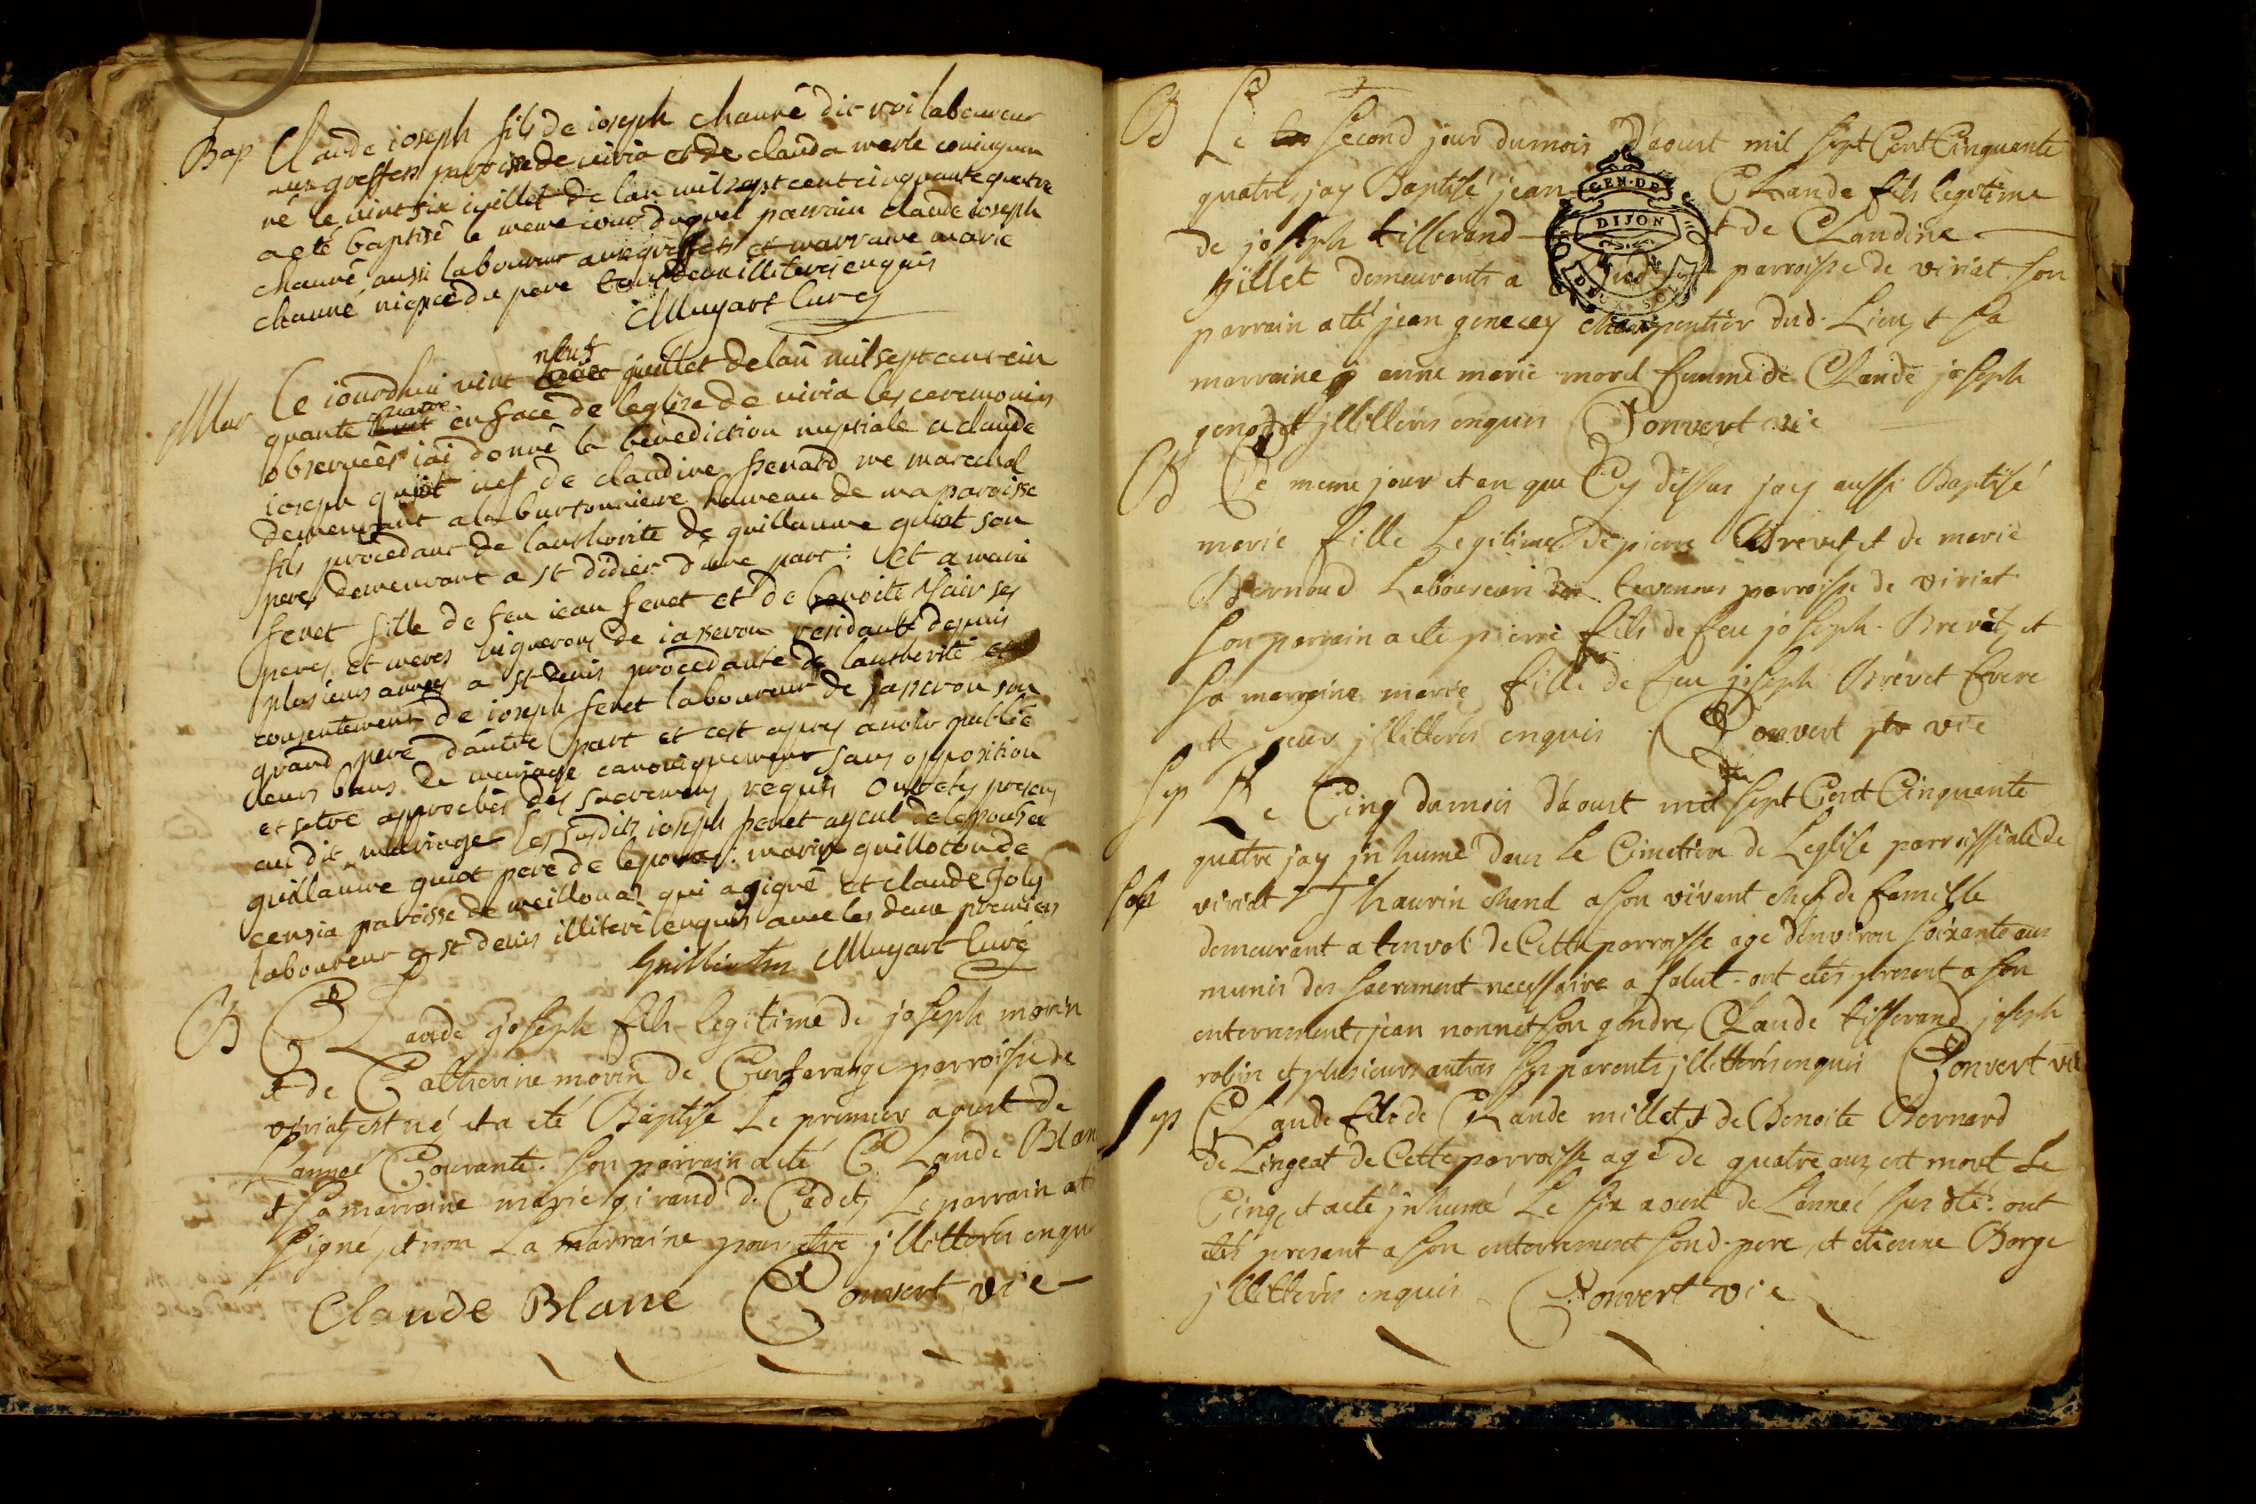 Bap Claude ioseph fils de ioseph chauné dit roi laboureur
aux goeffers paroisse de viria et de clauda merle coniugum
né le vint six iuillet de lan mil sept cent cinquante quatre
a eté baptisé le meme iour duquel parrain claude ioseph
chauné aussi laboureur aux goeffers et marraine marie
chauné niepce du pere tous deux illiteres enquis
Muyart Curé
neuf
Mar Ce iourdhui vint juillet de lan mil sept cent cin
quatre
quante en face de leglise de viria les ceremonies
observées iai donné la benediction nuptiale a claude
ioseph guiot vef de claudine me marechal
demeurant a la burtonniere hameau de ma paroisse
fils procedant de lauthorité de guillaume guiot son
pere demeurant a st didier dune part: et a marie
fenet fille de feu iean fenet et de benoite ses
peres et meres vignerons de iasseron residante depuis
plusieurs années a st denis procedante de lauthorité et
consentement de ioseph fenet laboureur de jasseron son
grand pere dautre part et cest apres avoir publié
leurs bans de mariage canoniquement sans opposition
et setre approchés des sacremens requis ont etes presens
au dit mariage les susdits ioseph fenet ayeul de lepouse
guillaume guiot pere de lepoux: marin guilloton de
censia paroisse de meillona qui a signé et claude Joly
laboureur a st denis illiteré enquis avec les deux premiers
Guilloton Muyart Curé
B Claude joseph fils legitime de joseph morin
et de Catherine morin de Curferange parroisse de
viriat est né, et a eté Baptisé Le premier aoust de
Lannee Courante. son parrain a eté CLaude Blan
et sa marraine marie girand de Cadet, Le parrain a
signé, et non La marraine pour etre jllitteres enqui
Claude Blanc Convert vic
B Le second jour du mois d'aoust mil sept Cent Cinquante
quatre, jay Baptisé jean CLaude fils legitime
GEN. DE
DIJON
de joseph tillerand et de CLaudine
gillet demeurants a parroisse de viriat. son
parrain a eté jean genecey Charpentier dud. Lieu, et sa
marraine anne marie morel femme de CLaude joseph
genodet jllitteres enquis Convert vic
B Le meme jour et an que Cy dessus jay aussi Baptisé
marie fille Legitime de pierre Brevet, et de marie
Bernoud Laboureurs parroisse de viriat
son parrain a eté pierre fils de feu joseph Brevet, et
sa marraine marie fille de feu joseph Brevet frere
et seur jllitteres enquis Convert vic
Sep Le Cinq du mois d'aoust mil sept Cent Cinquante
quatre jay jnhumé dans Le Cimettiere de Leglise parroissiale de
viriat Thaurin a son vivant chef de famille
demeurant a de Cette parroisse agé d'environ soixante ans
munis des sacrement necessaire a salut. ont etés present a son
enterrement, jean nonnet son gendre, CLaude tisserand, joseph
robin et plusieurs autres ses parents jllitterés enquis Convert vic
Sep CLaude fils de CLaude millet, et de Benoite Bernard
de Lingeat de Cette parroisse agé de quatre ans, est mort Le
Cinq, et a eté jnhumé Le six aoust de Lannée sus dte. ont
etés present a son enterrement sond. pere, et etienne Borge
jllitterés enquis Convert vic